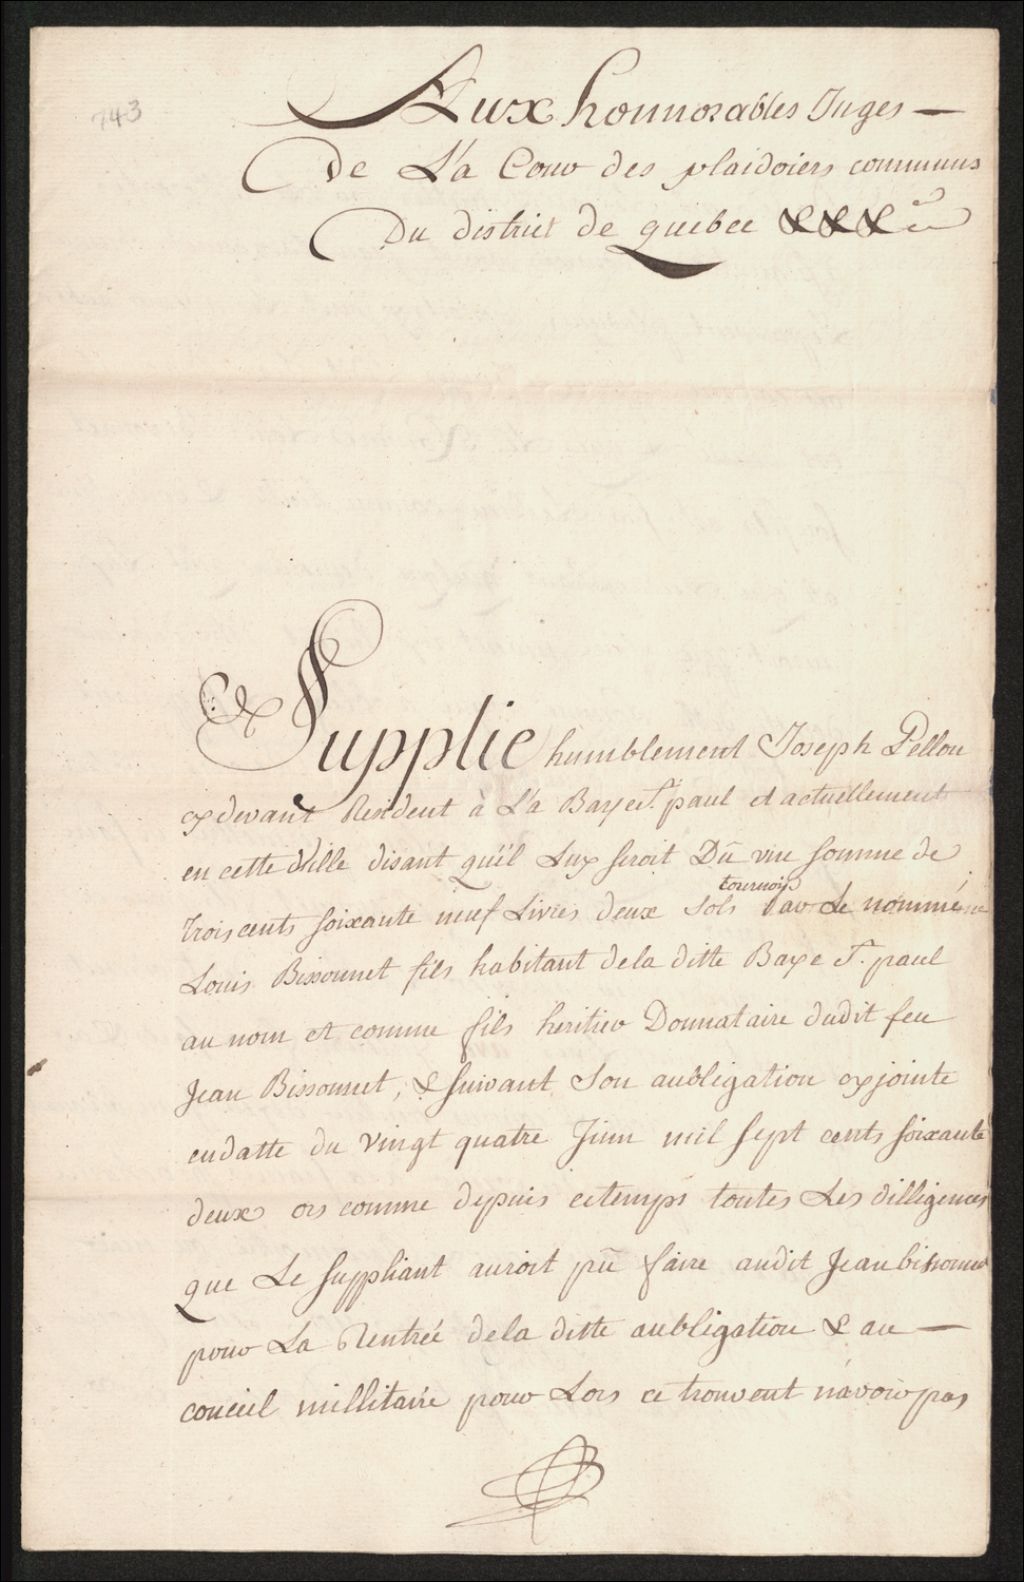 743
Aux honnorables Juges —
De L'a Cour des plaidoiers communs
Du district de quebec &&&a
Supplie humblement Joseph Pellou
cydevant Resident à L'a Baye St. paul et actuellement
en cette Ville disant qu'il Luy seroit Dû une somme de
trois cents soixante neuf Livres deux sols tournois par Le nommé
Louis Bissonnet fils habitant dela ditte Baye St. paul
au nom et comme fils heritier Donnataire dudit feu
Jean Bissonnet, & suivant son aubligation cyjointe
endatte du vingt quatre Juin mil sept cents soixante
deux ors comme depuis cetemps toutes Les dilligences
que Le suppliant auroit pû faire audit Jean bissonnet
pour La Rentrée dela ditte aubligation & au —
conciel millitaire pour Lors ce trouvent n'avoir pas